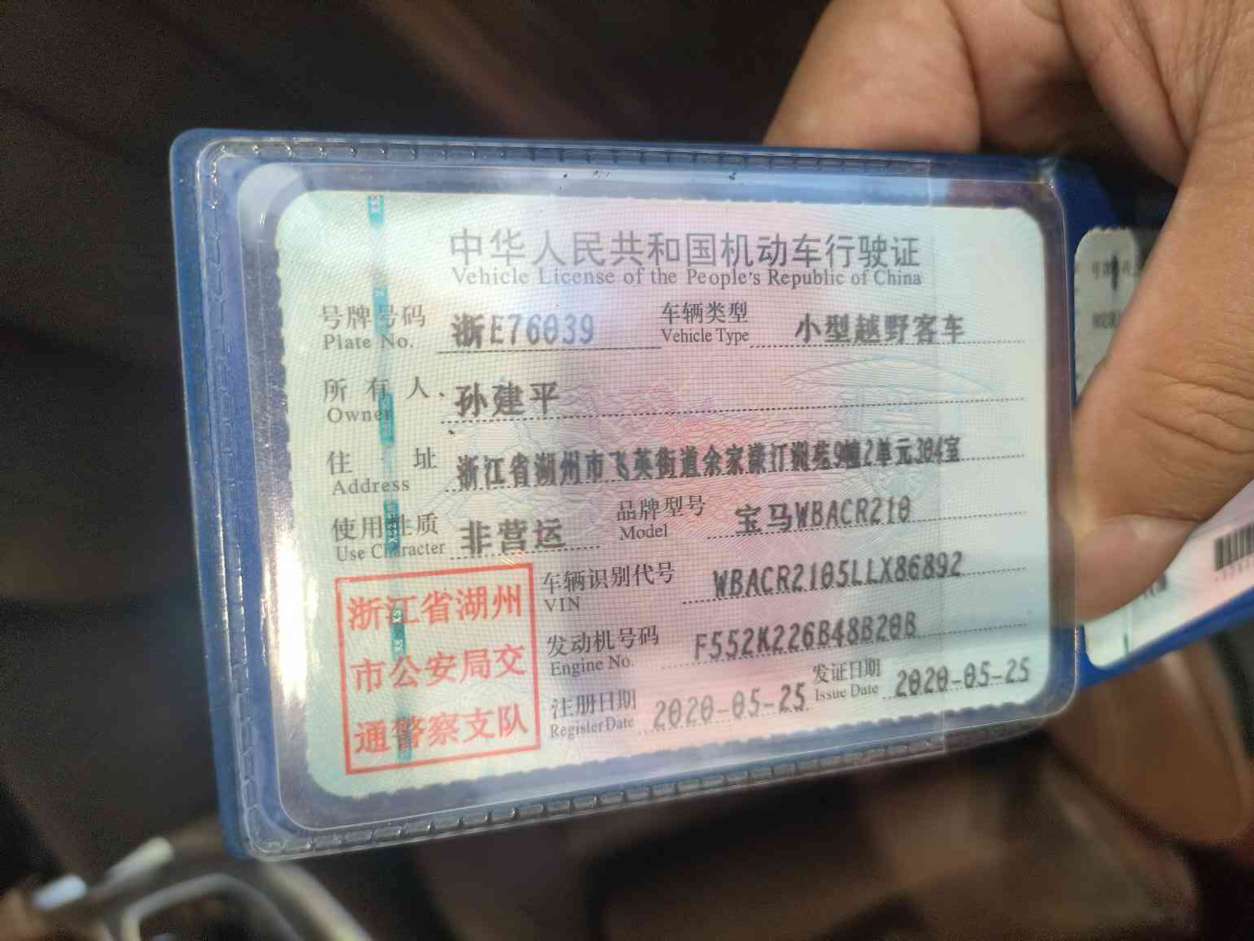 中华人民共和国机动车行驶证
Vehicle License of the People's Republic of China
号牌号码 浙E76039 车辆类型 小型越野客车
Plate No. Vehicle Type
所有人 孙建平
Owner
住址 浙江省湖州市飞英街道余家漾汀洲苑9幢2单元304室
Address
使用性质 非营运 品牌型号 宝马WBACR210
Use Character Model
车辆识别代号 WBACR2105LLX86892
VIN
发动机号码 F552K226B48B20B
Engine No.
注册日期 2020-05-25 发证日期 2020-05-25
Register Date Issue Date
浙江省湖州
市公安局交
通警察支队